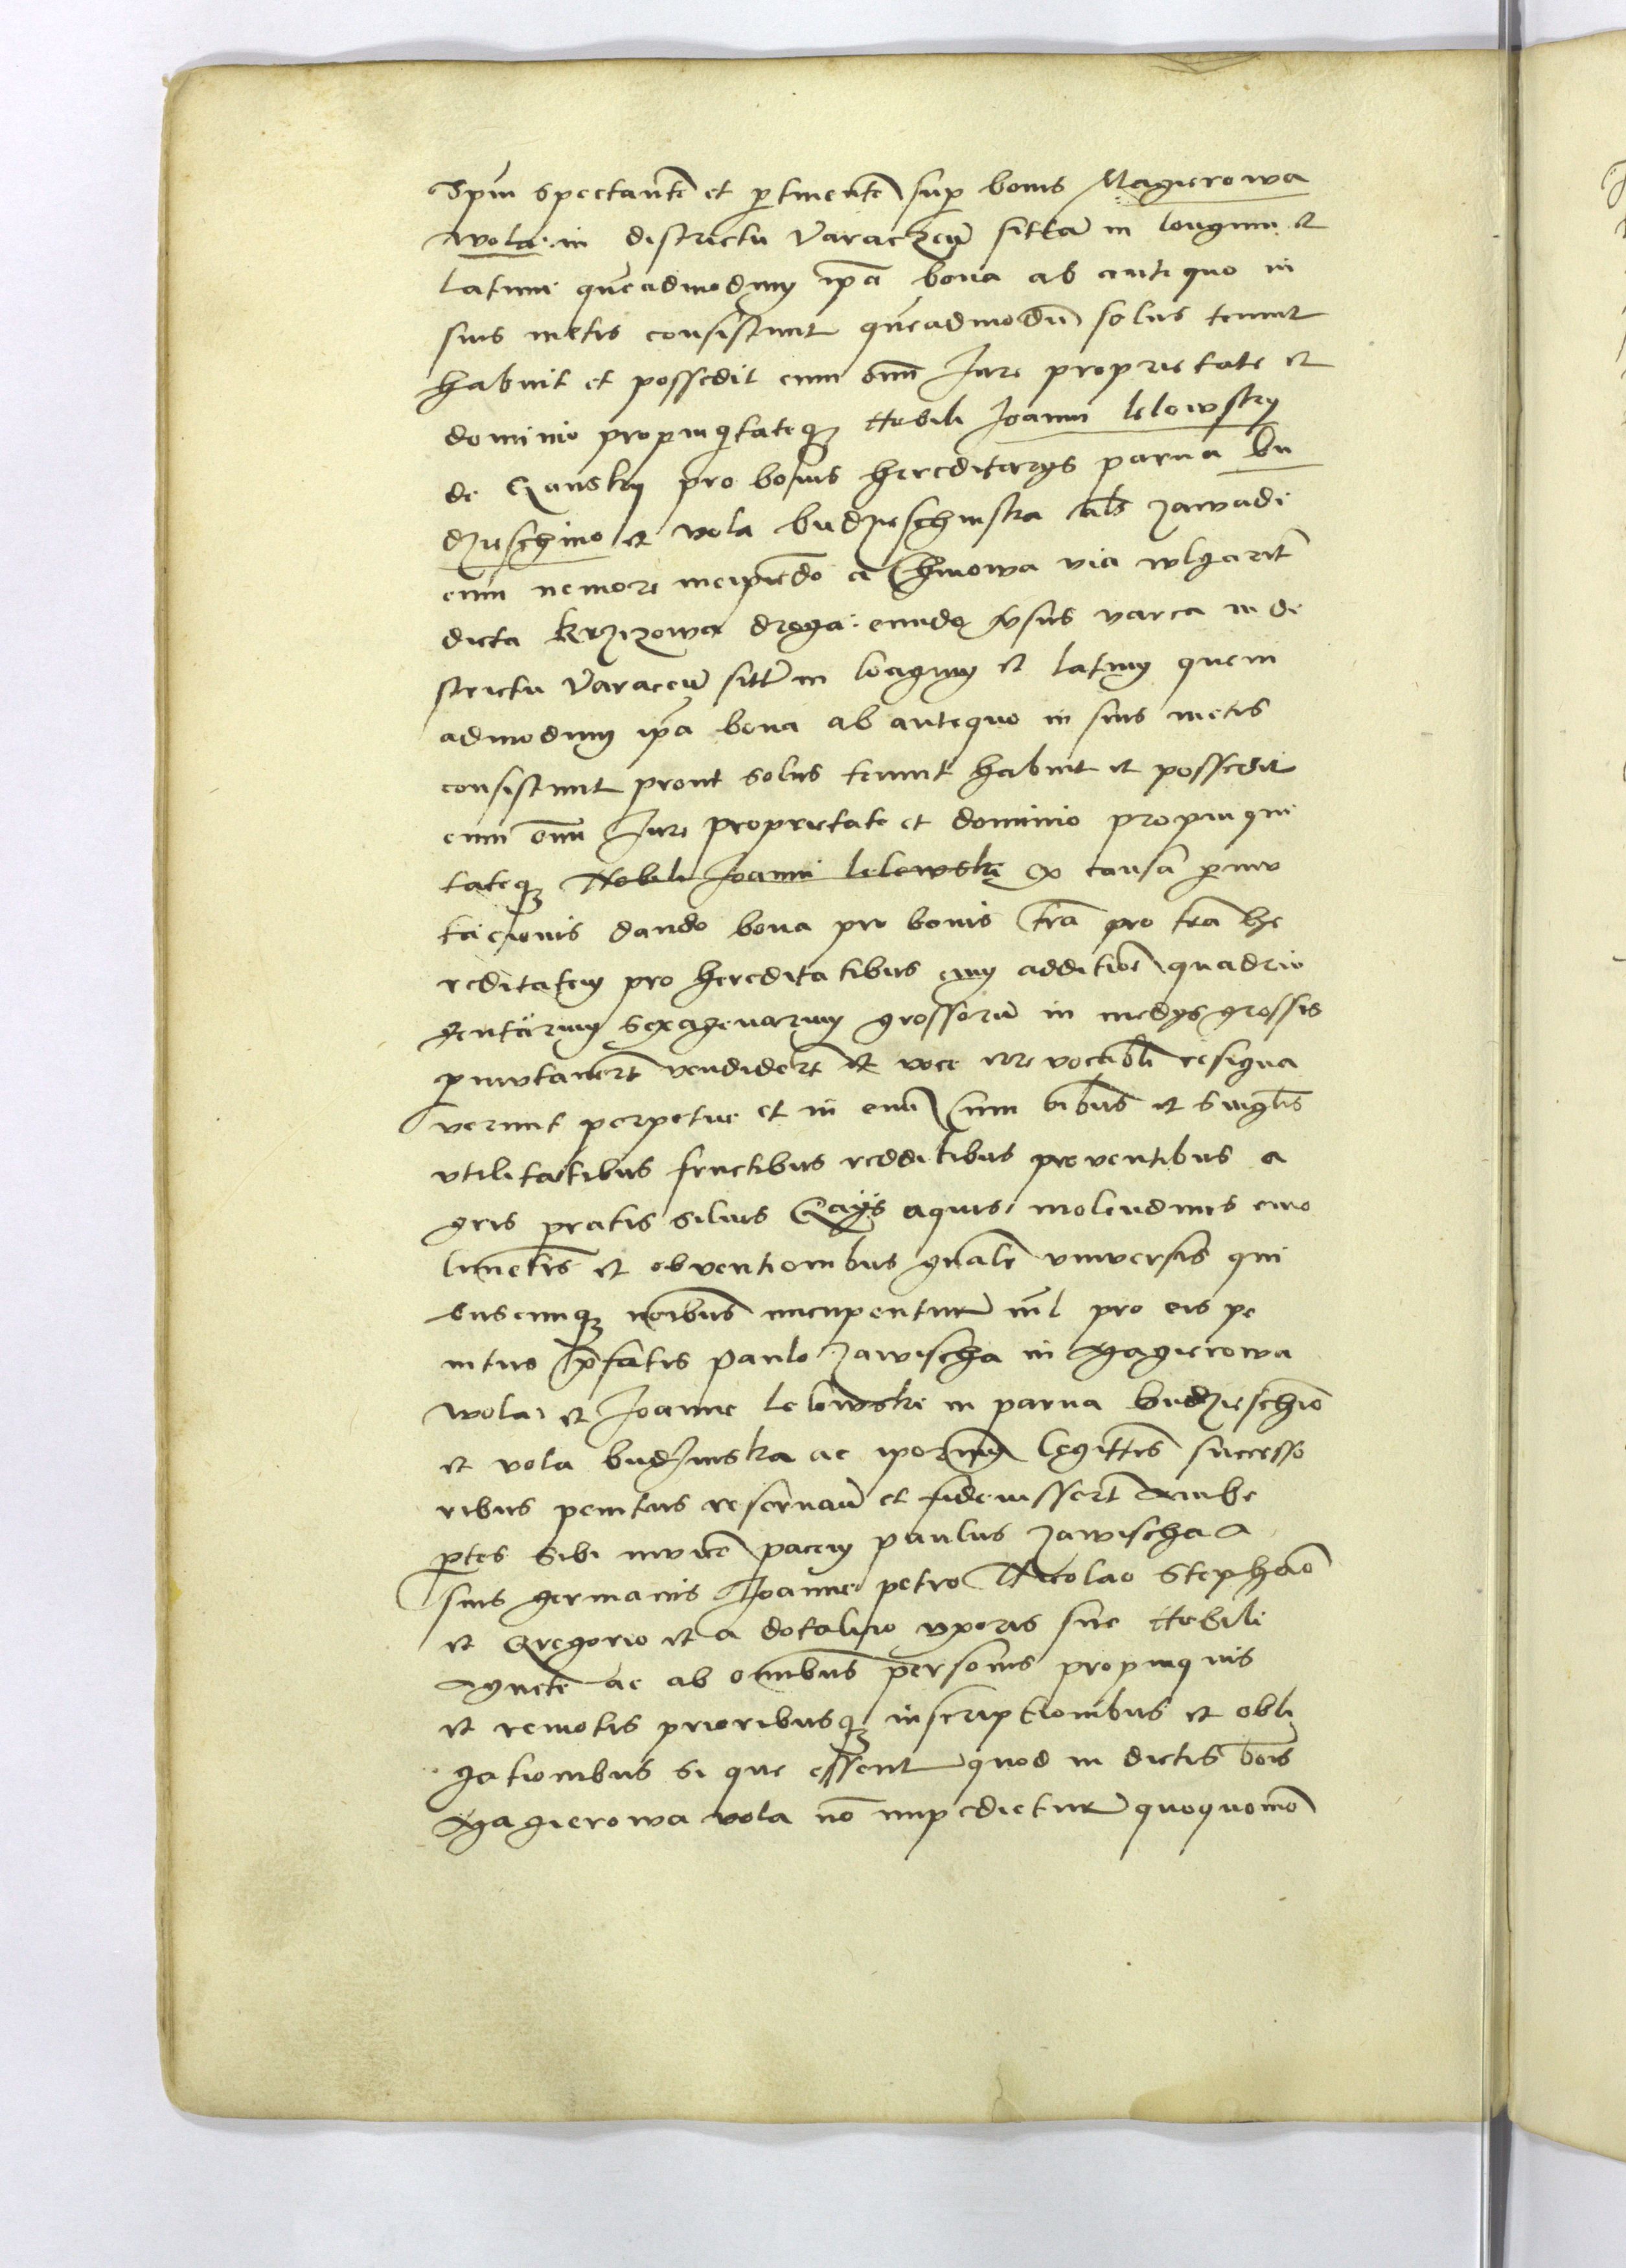 Ipm̄ spectantē et ꝑtinentē sup bonis Magierowa
wola in districtu Varaczeñ sittā in longum et
latum quēadmodum ipā bona ab antiquo in
suis metis consistunt quēadmodū solus tenuit
habuit et possedit cum om̄i Iure proprietate et
dominio propinq̄tateqꝫ Nobili Joanni lelowsky
de Gansky pro bonis hereditarys parua bu
dzieschino et vola budzieschinska als zawadi
cum nemore incipiēdo a Chinowa via wlgarit̄
dicta krzizowa droga eundo v̄sus varca in di
strictu Varaceñ sitt̄ in longum et latum quem
admodum ipā bona ab antiquo in suis metis
consistunt prout solus tenuit habuit et possedit
cum om̄i Iure proprietate et dominio propinqui
tateqꝫ Nobili Joanni lelowskị ex causa ꝑmu
tacionis dando bona pro bonis trā pro trā he
reditatem pro hereditatibus cum additiōe quadrin
gentarum sexagenarum grossorū in medys grossis
ꝑmutauerūt vendiderūt et voce irreuocabili resigna
verunt perpetue et in eum Cum oībus et singlis
vtilitatibus fructibus redditibus prouentibus a
gris pratis siluis Gays aquis molendinis emo
limētis et obuentionibus gnāle vniuersis qui
buscunqꝫ noībus nuncupentur nil pro eis pe
nitus p̄fatis Paulo zawischa in Magierowa
wola et Joanne lelowski in parua budzieschīo
et vola budzinska ac iporum legittīs successo
ribus penitus reseruañ et fideiusserūt Ambe
ꝑtes sibi inuicē pacem paulus zawischa A
suis germanis Joanne petro Nicolao Stephāo
et Gregorio et a dotalicio vxoris sue Nobili
Agnetē ac ab omnibus personis propinquis
et remotis prioribusqꝫ inscriptionibus et obli
gationibus si que essent quod in dictis bōis
Magierowa vola nō impedietur quoquomō